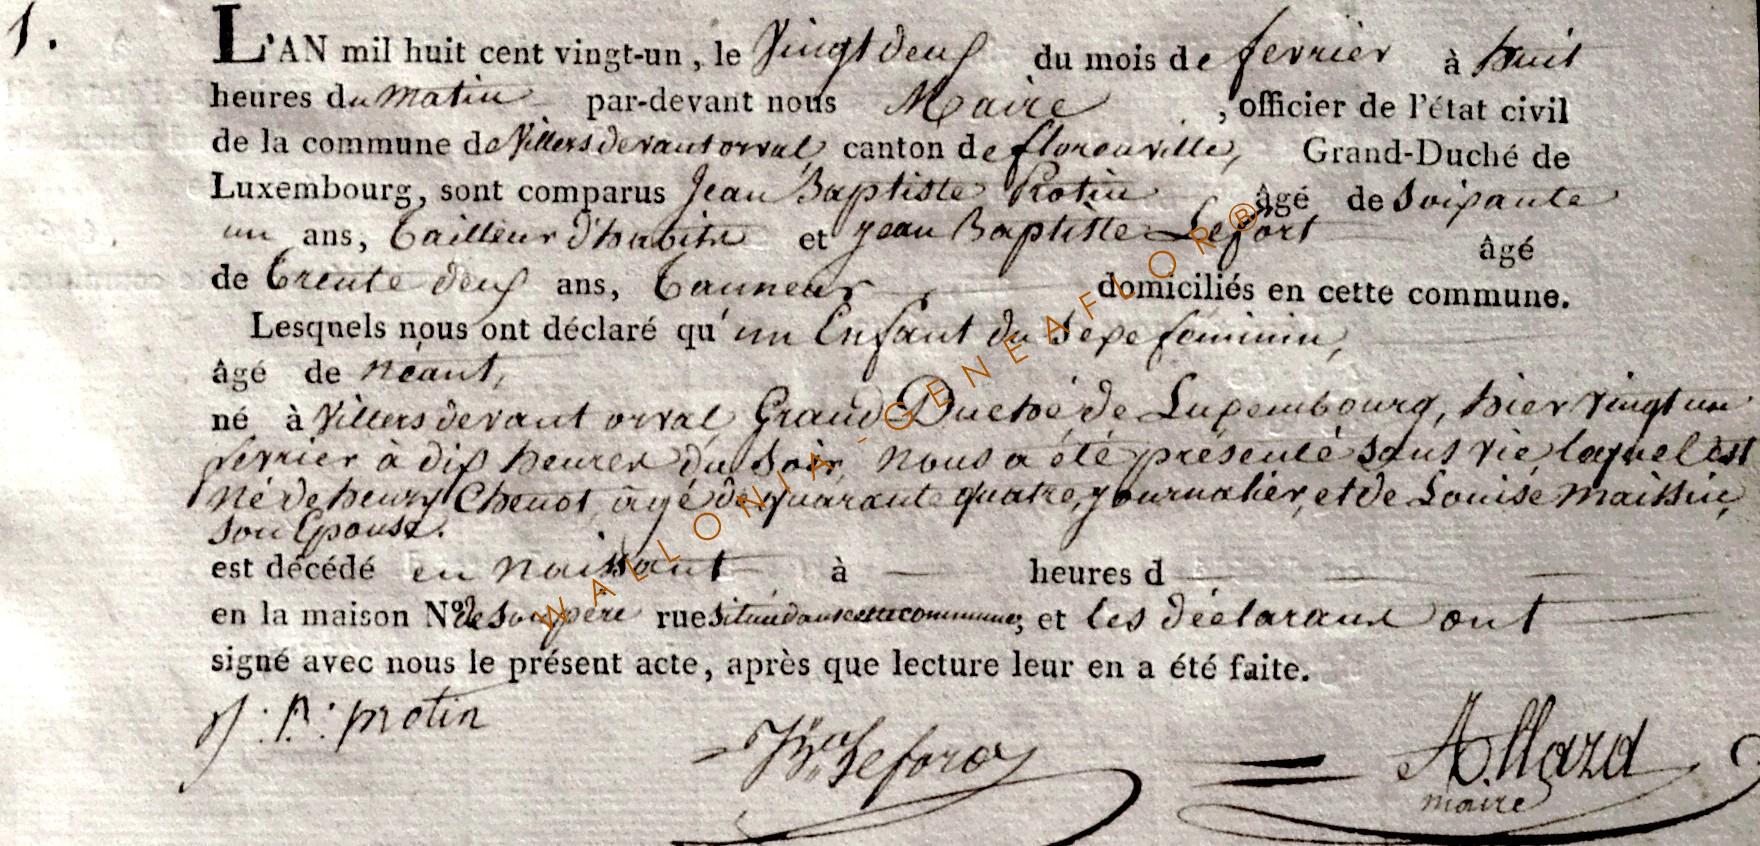 1.
L'AN mil huit cent vingt-un, le Vingt deux du mois de fevrier à huit
heures du matin par-devant nous Maire , officier de l'état civil
de la commune de Villers devant orval, canton de florenville, Grand-Duché de
Luxembourg, sont comparus Jean Baptiste Protin âgé de Soixante
un ans, tailleur d'habits et jean Baptiste Lefort âgé
de trente deux ans, tanneur domiciliés en cette commune.
Lesquels nous ont déclaré qu'un Enfant du Sexe féminin,
âgé de néant,
né à Villers devant orval Grand Duché de Luxembourg, hier vingt un
fevrier à dix heures du soir, nous a été présenté sans vie lequel est
né de henry Chenot âgé de quarante quatre, journalier, et de Louise maissin,
son Epouse.
est décédé en naissant à heures d
en la maison N° de son père rue située dans cette commune, et les déclarans ont
signé avec nous le présent acte, après que lecture leur en a été faite.
J: B: protin
JBte Lefort
Allard
maire
WALLONIA - GENEAFLOR®